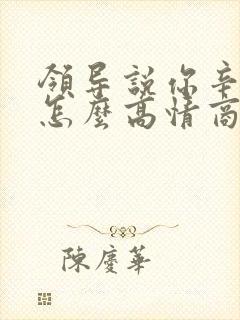 領导說你辛
怎麼高情商
陳慶華